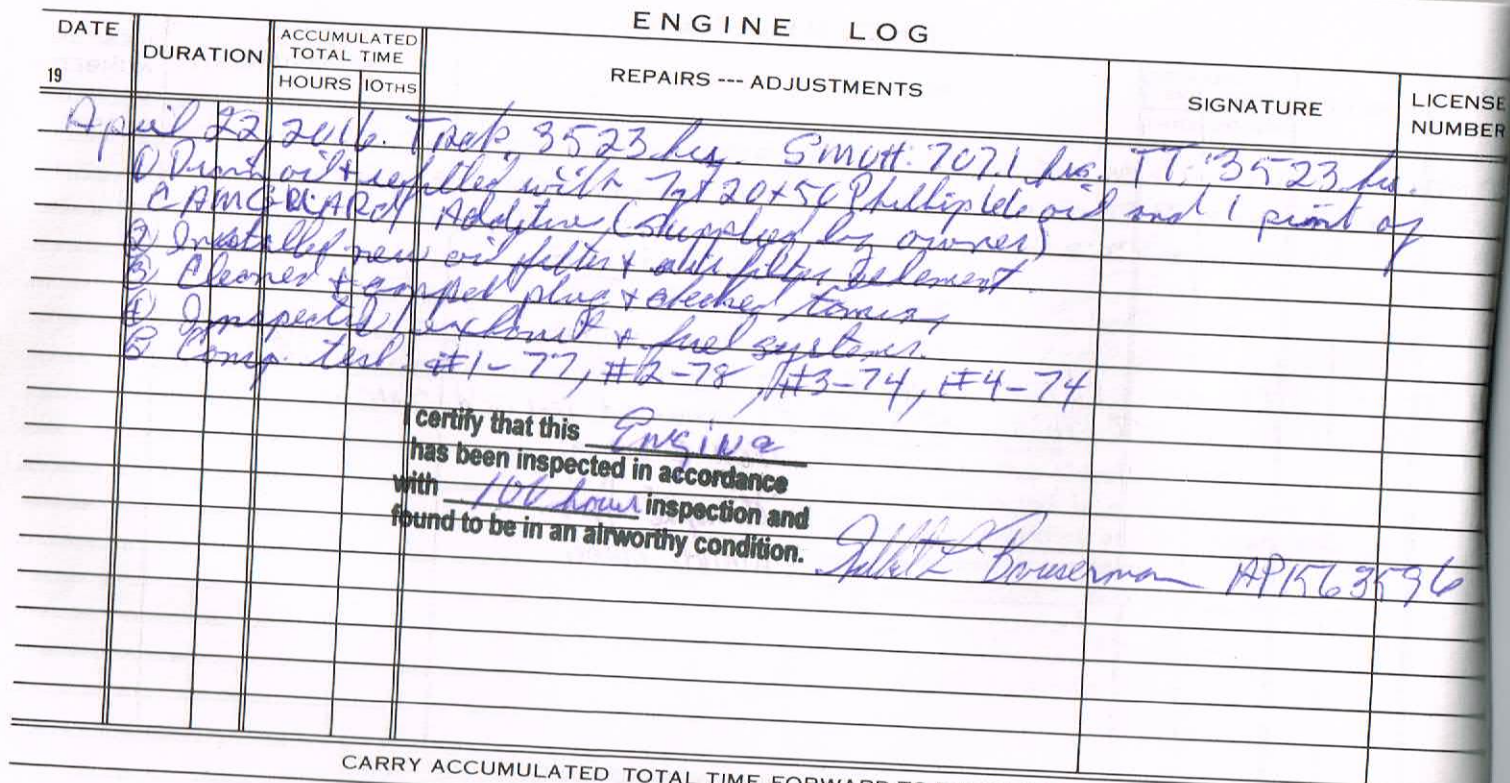 ENGINE LOG
DATE
19
DURATION
ACCUMULATED
TOTAL TIME
HOURS 10THS
REPAIRS --- ADJUSTMENTS
SIGNATURE
LICENSE
NUMBER
April 22, 2016. Tach. 3523 hrs. SMOH: 707.1 hrs. TT: 3523 hrs.
1) Drain oil + refilled with 7qt 20+50 oil and 1 pint of
CAMGUARD Additive (Supplied by owner)
2) Installed new oil filter + air filter element.
3) Cleaned + gapped plug + checked timing
4) Inspected exhaust + fuel systems.
5 Comp. test #1-77, #2-78, #3-74, #4-74
certify that this Engine
has been inspected in accordance
with 100 hour inspection and
found to be in an airworthy condition.
Bouserman AP1563596
CARRY ACCUMULATED TOTAL TIME FORWARD